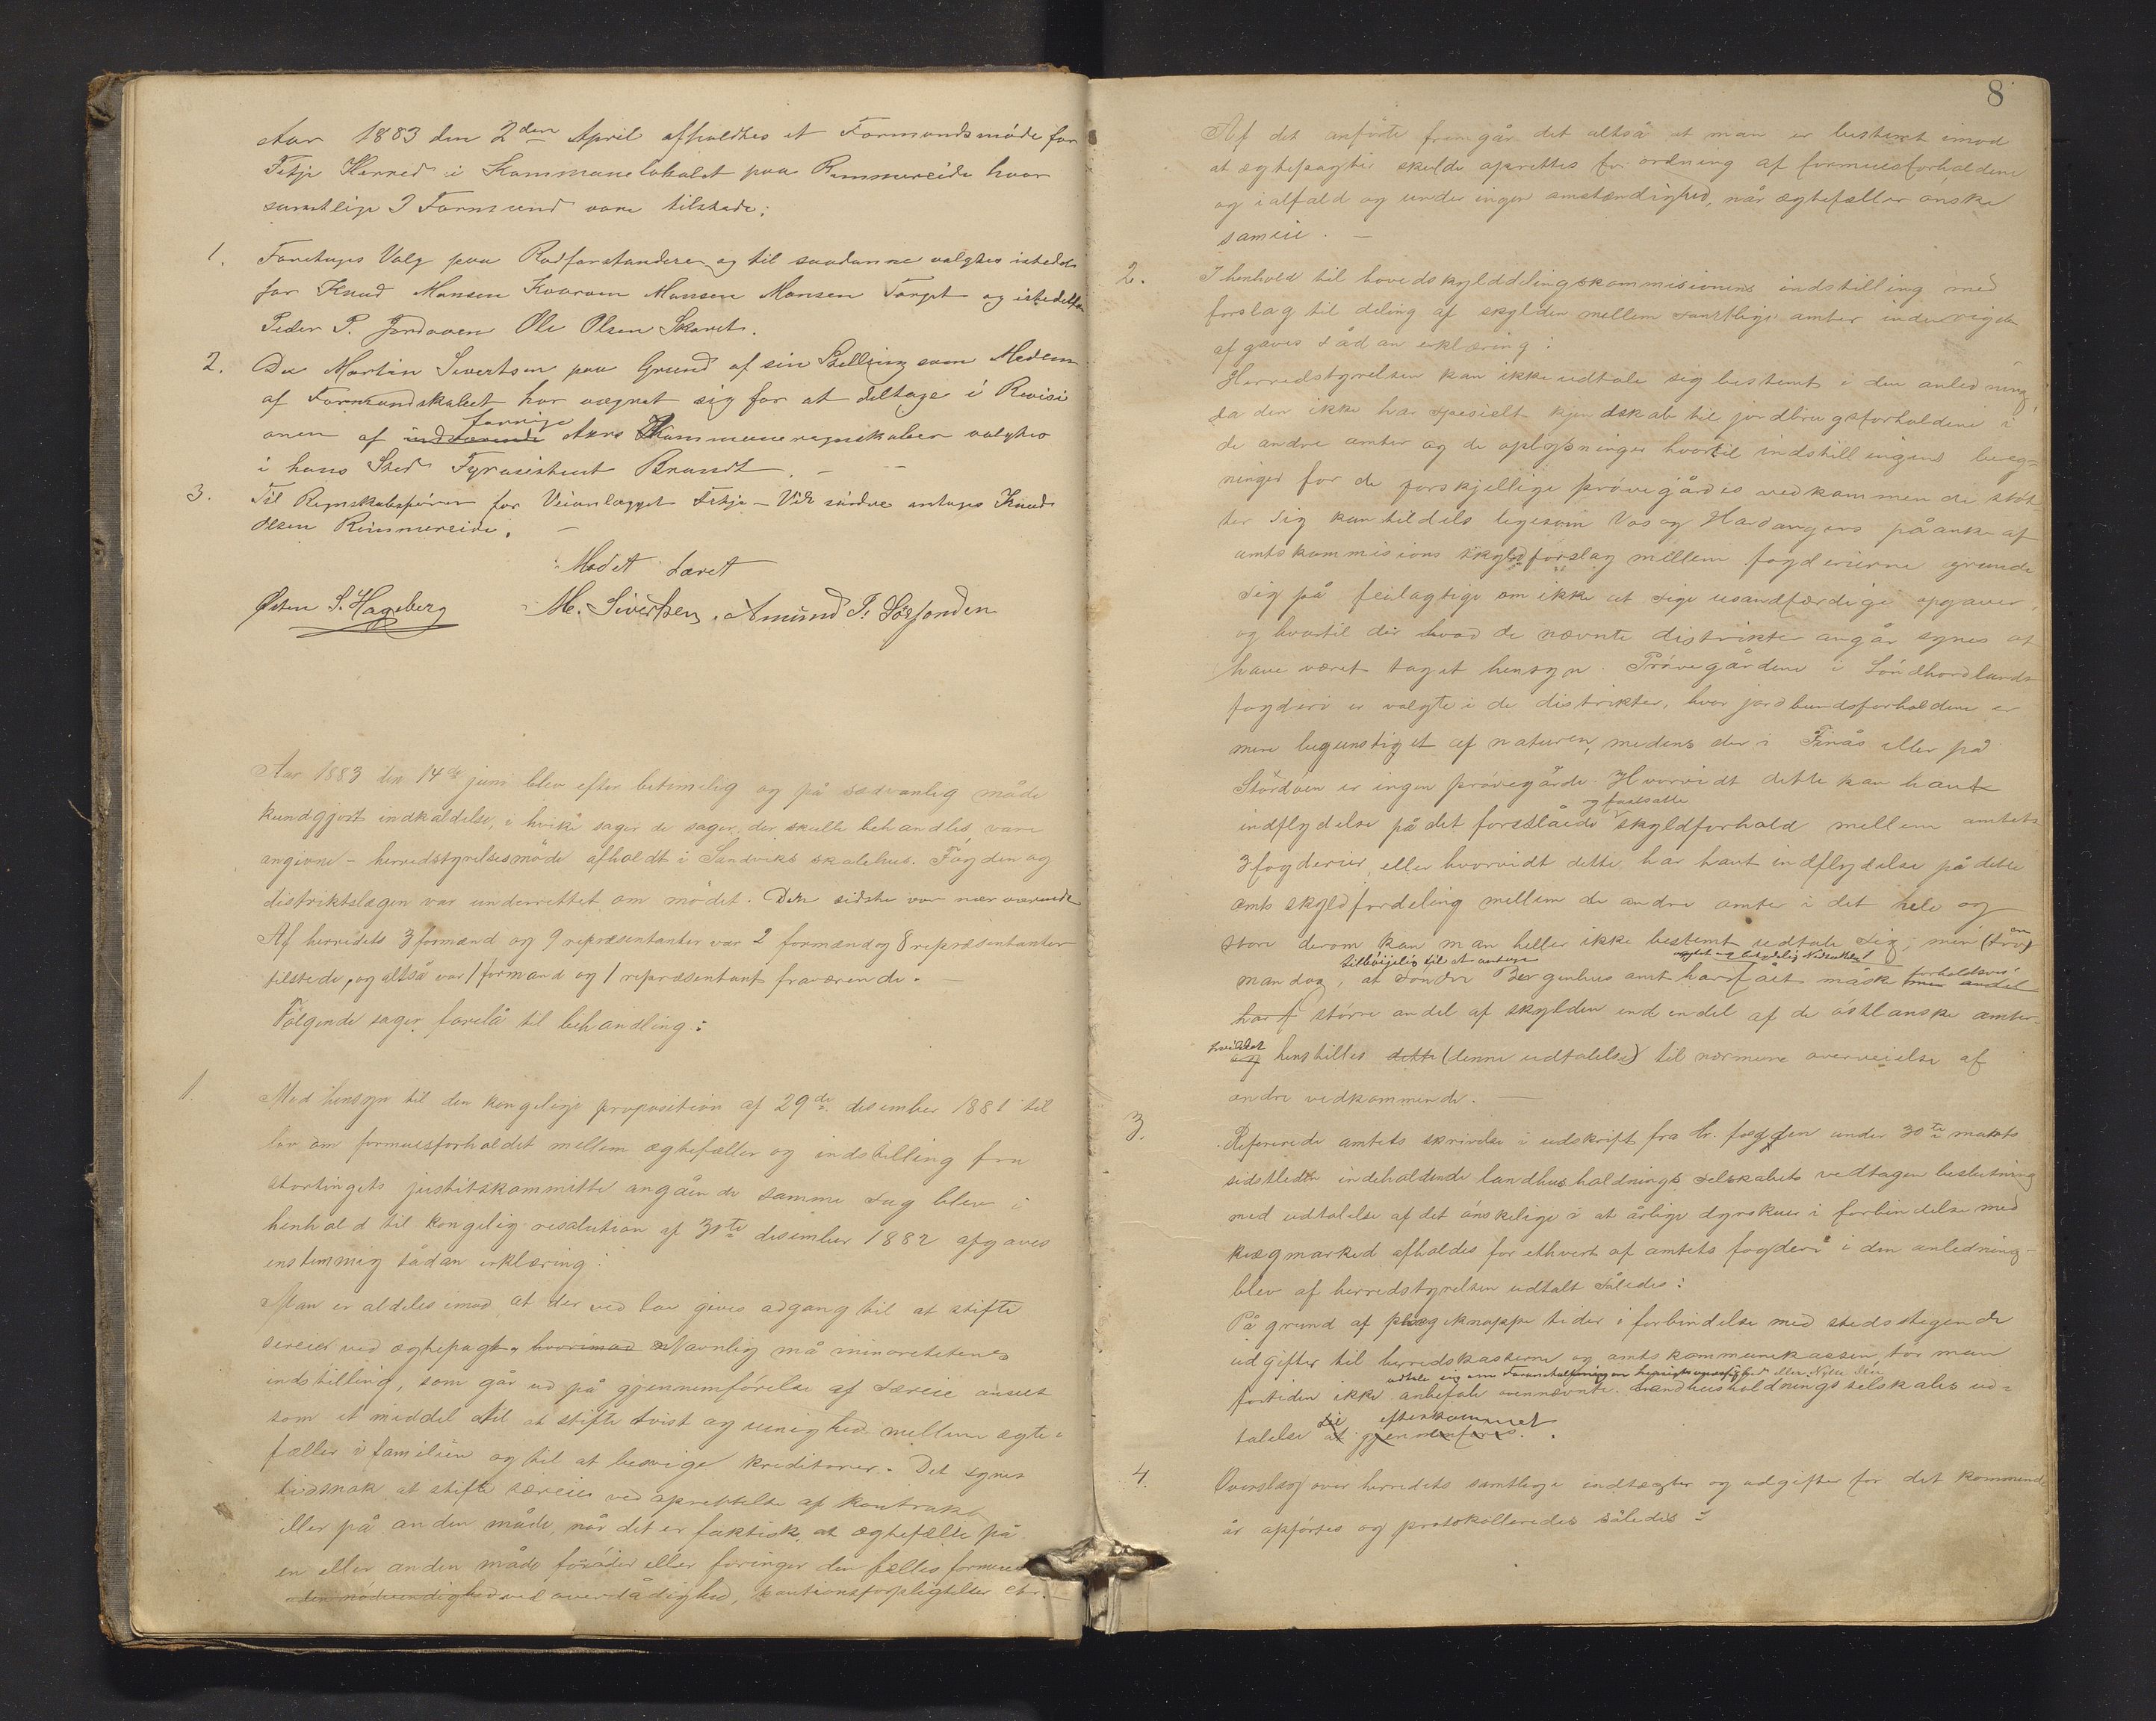 Aar 1883 den 2den April afholdtes et Formandsmøde for
Fitje Herred i Kommunelokalet paa Rimmereide hvor
samtlige 3 Formænd vare tilstede:
1. Foretages Valg paa Rodforstandere og til saadanne valgtes istedet
for Knud Monsen Kvarven Monsen Monsen Torget og istedetfor
Peder P. Ole Olsen Skaret.
2. Da Martin Sivertsen paa Grund af sin Stilling som Medlem
af Formandskabet har vægret sig for at deltage i Revisi
forrige
onen af indeværende Aars Kommuneregnskaber valgtes
i hans Sted Fyrassistent Brandt. —
3. Til Regnskabsfører for Veianlægget Fitje - Vik søndre antages Knud
Olsen Rimmereide. —
Mødet hævet
Østen S. Hageberg M. Sivertsen. Amund T. Sørfonden
Aar 1883 den 14de juni blev efter betimelig og på sædvanlig måde
kundgjort indkaldelse, i hvike sager de sager, der skulle behandles, vare
angivne - herredstyrelsesmøde afholdt i Sandviks skolehus. Fogden og
distriktslægen var underrettet om mødet. Den sidste var nærværende
Af herredets 3 formænd og 9 repræsentanter var 2 formænd og 8 repræsentanter
tilstede, og altså var 1 formand og 1 repræsentant fraværende. —
Følgende sager forelå til behandling:
1. Med hensyn til den kongelige proposition af 29de desember 1881 til
lov om formuesforholdet mellem ægtefæller og indstilling fra
stortingets justitskommitte angående samme sag blev i
henhold til kongelig resolution af 30te desember 1882 afgaves
enstemmig sådan erklæring:
Man er aldeles imod, at der ved lov gives adgang til at stifte
særeier ved ægtepagt, hvorimod Navnlig må minoritetens
indstilling, som går ud på gjennemførelse af særeie ansees
som et middel til at stifte tvist og uenighed mellem ægte-
fæller i familien og til at besvige kreditorer. Det synes
tidsnok at stifte særeier ved oprettelse af kontrakt
eller på anden måde, når det er faktisk, at ægtefælle på
en eller anden måde forøder eller foringer den fælles formue
uden nødvendighed ved overdådighed, kautionsforpligtelser etc. —
8
Af det anførte fremgår det altså at man er bestemt imod
at ægtepagter skulde oprettes for ordning af formuesforholdene
og ialfald og under ingen omstændighed, når ægtefæller ønske
sameie. —
2. I henhold til hovedskylddelingskommisionens indstilling med
forslag til deling af skylden mellem samtlige amter inden riget
afgaves sådan erklæring:
Herredstyrelsen kan ikke udtale sig bestemt i den anledning,
da den ikke har spesielt kjendskab til jordbrugsforholdene i
de andre amter og de oplysninger hvortil indstillingens bereg-
ninger for de forskjellige prøvegårdes vedkommende støt-
ter sig kun tildels ligesom Vos og Hardangers påanke af
amtskommisions skyldforslag mellem fogderierne grunde
sig på feilagtige om ikke at sige usandfærdige opgaver,
og hvortil der hvad de nævnte distrikter angår synes at
have været taget hensyn. Prøvegårdene i Søndhordlands
fogderi er valgte i de distrikter, hvor jordbundsforholdene er
mere begunstiget af naturen, medens der i Finås eller på
Stordøen er ingen prøvegårde. Hvorvidt dette kan have
og fastsatte
indflydelse på det foreslåede skyldforhold mellem amtets
3 fogderier, eller hvorvidt dette har havt indflydelse på dette
amts skyldfordeling mellem de andre amter i det hele og
store derom kan man heller ikke bestemt udtale sig, men (tror)
tilbøielig til at antage
man dog, at Søndre Bergenhus amt har fåt måske forholdsvis
mer andel
har f større andel af skylden end endel af de østlanske amter.
hvilket
og henstilles dette (denne udtalelse) til nærmere overveielse af
andre vedkommende. —
3. Refererede amtets skrivelse i udskrift fra hr. fogden under 30te
sidstleden indeholdende landhusholdnings selskabets vedtagen beslutning
med udtalelse af det ønskelige i at årlige dyrskuer i forbindelse med
kvægmarked afholdes for ethvert af amtets fogderi i den anledning
blev af herredstyrelsen udtalt således:
På grund af pengeknappe tider i forbindelse med stedsstegende
udgifter til herredskasserne og amtskommunekassen tør man
udtale sig om eller Nytte
fortiden ikke anbefale ovennævnte landhusholdningsselskabs ud-
til efterkommet
talelse at gjennemføres.
4. Overslag over herredets samtlige indtægter og udgifter for det kommende
år opførtes og protokolleredes således: